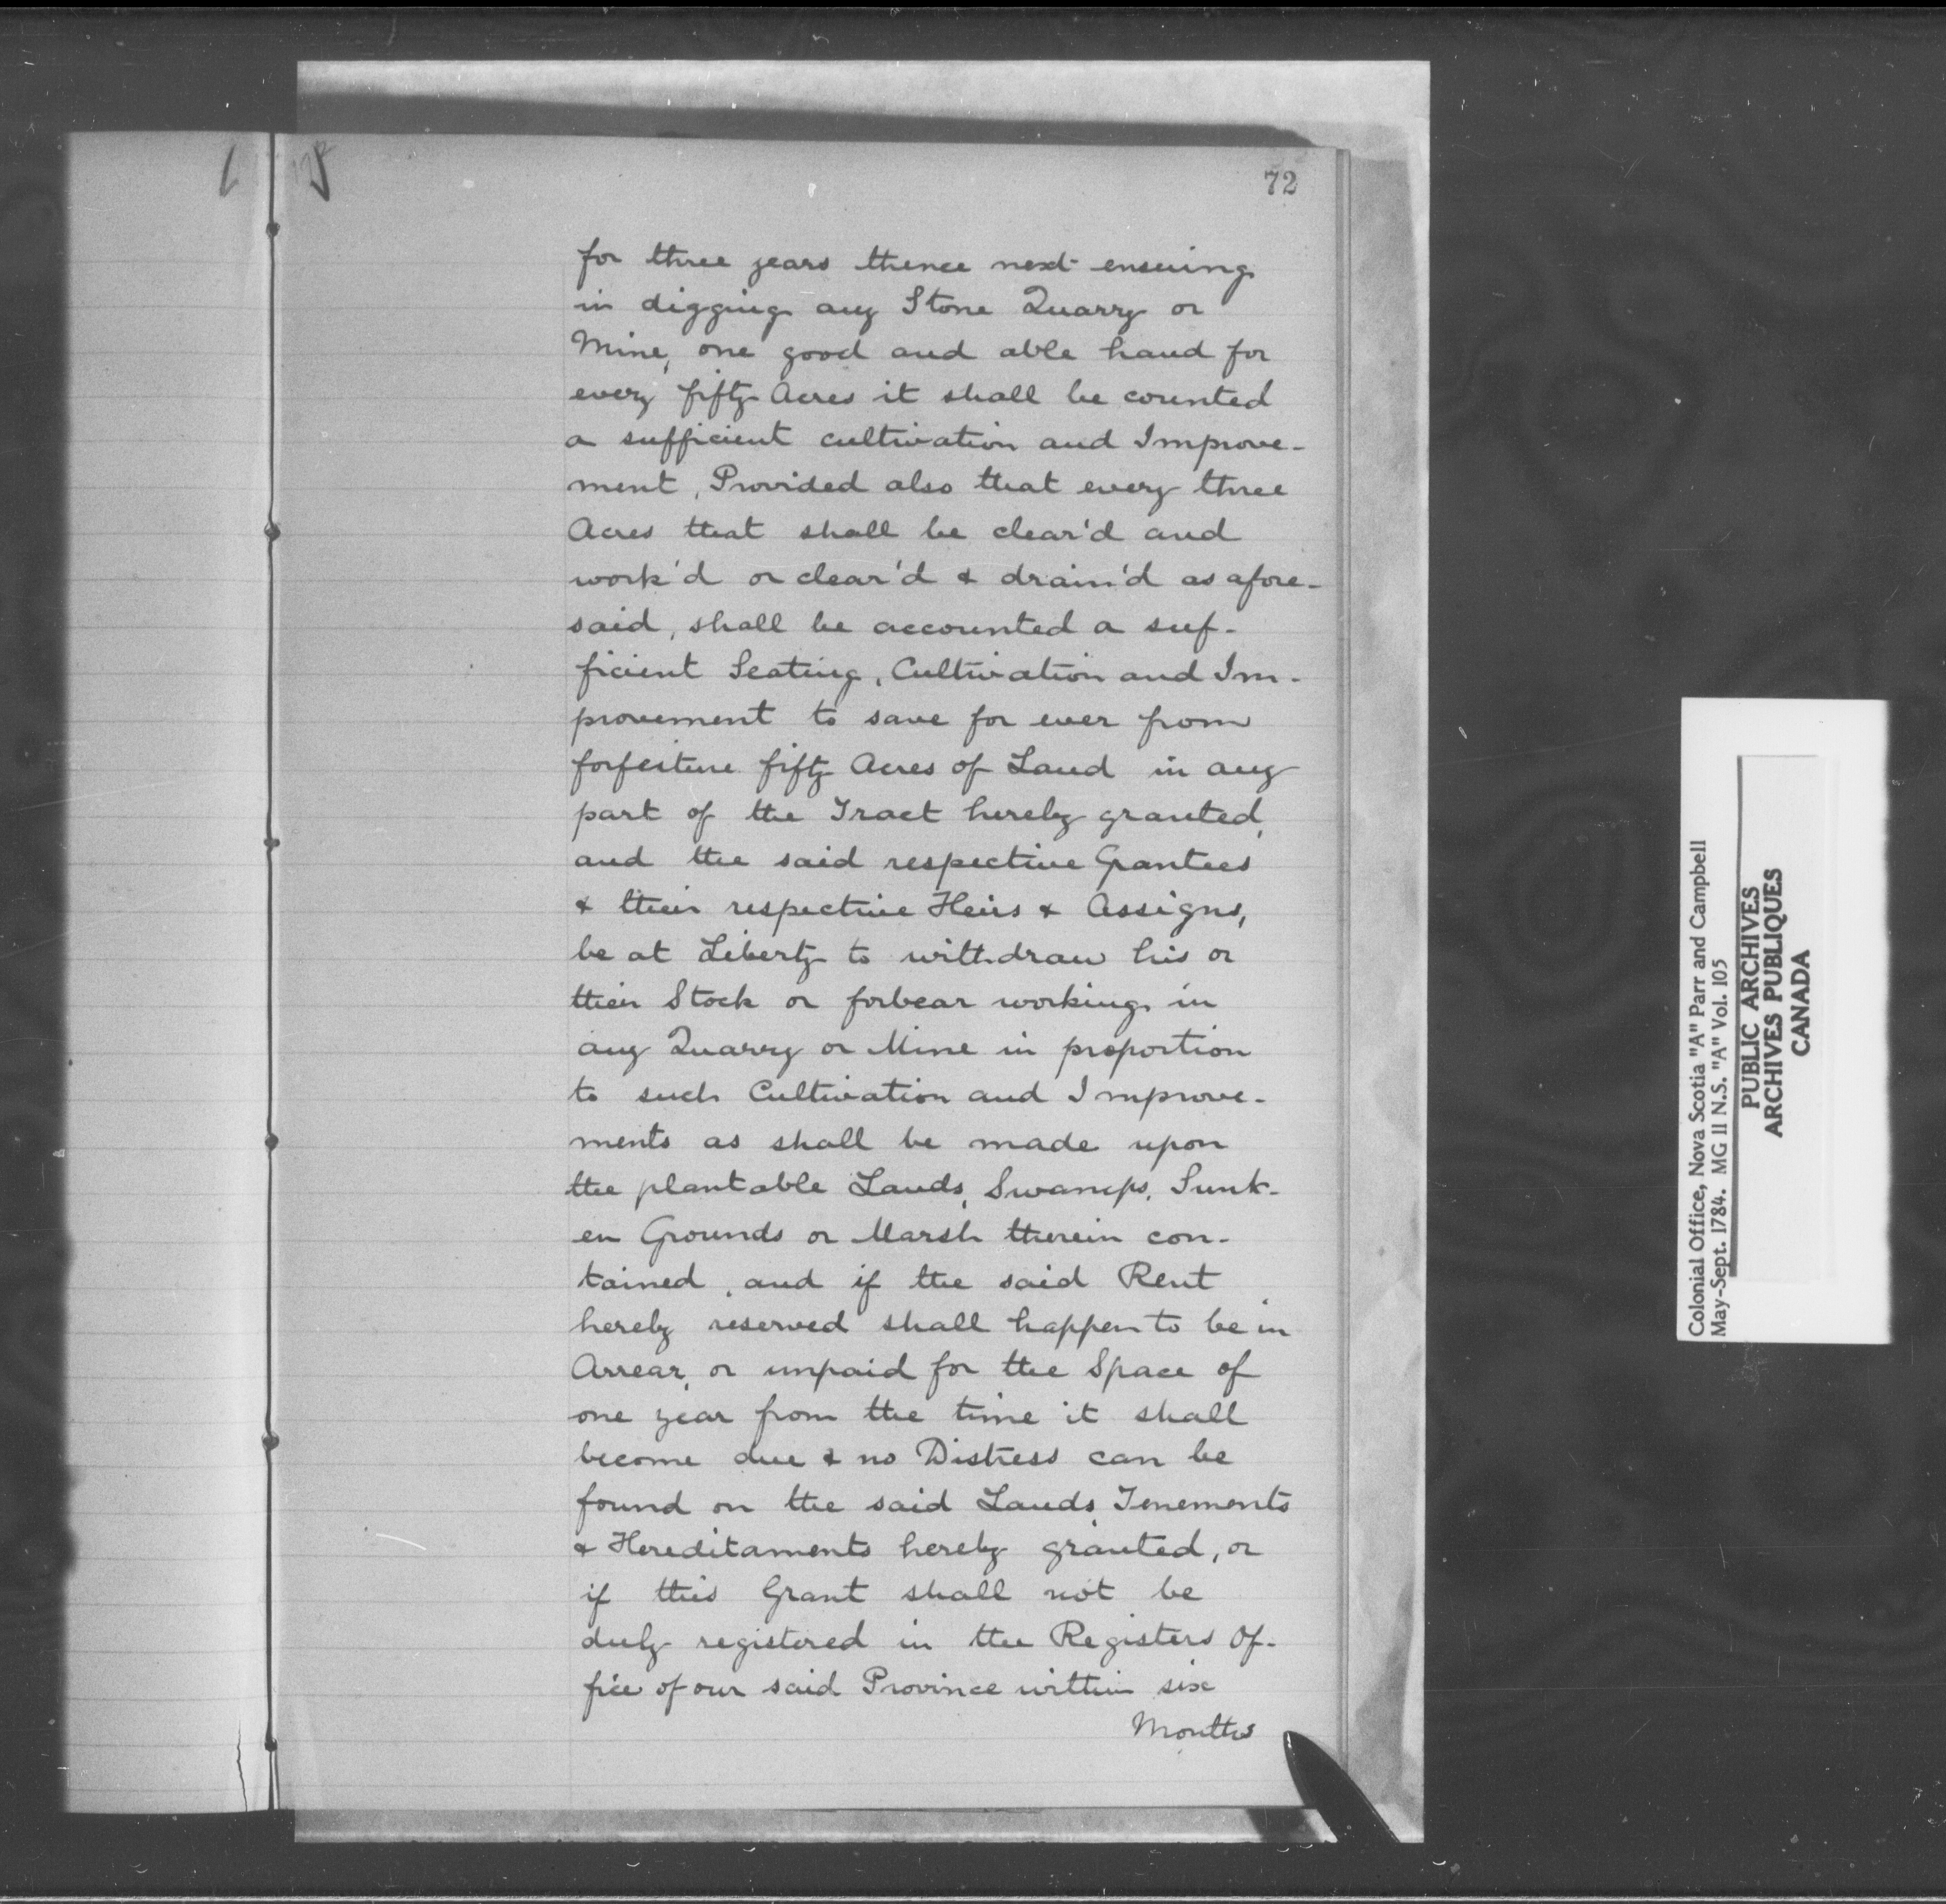 72
for three years thence next ensuing
in digging any Stone Quarry or
Mine, one good and able hand for
every fifty Acres it shall be counted
a sufficient cultivation and Improve-
ment, Provided also that every three
Acres that shall be clear'd and
work'd or clear'd & drain'd as afore-
said, shall be accounted a suf-
ficient Seating, Cultivation and Im-
provement to save for ever from
forfeiture fifty Acres of Land in any
part of the Tract hereby granted,
and the said respective Grantees
& their respective Heirs & Assigns,
be at Liberty to withdraw his or
their Stock or forbear working in
any Quarry or Mine in proportion
to such Cultivation and Improve-
ments as shall be made upon
the plantable Lands, Swamps, Sunk-
en Grounds or Marsh therein con-
tained, and if the said Rent
hereby reserved shall happen to be in
Arrear, or unpaid for the Space of
one year from the time it shall
become due & no Distress can be
found on the said Lands, Tenements
& Hereditaments hereby granted, or
if this Grant shall not be
duly registered in the Registers Of-
fice of our said Province within six
Months
Colonial Office, Nova Scotia "A" Parr and Campbell
May-Sept. 1784. MG 11 N.S. "A" Vol. 105
PUBLIC ARCHIVES
ARCHIVES PUBLIQUES
CANADA